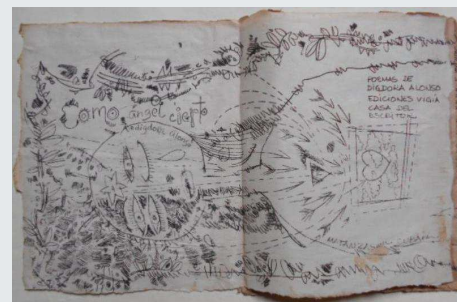 Como ángel cierto
digdora alonso
POEMAS DE
DIGDORA ALONSO
EDICIONES VIGIA
CASA DEL
ESCRITOR